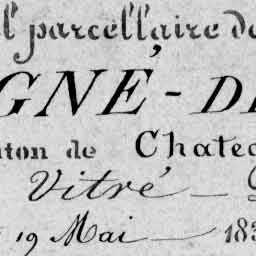 l parcellaire de
GNÉ-DE
nton de Chate
Vitré
19 Mai 183